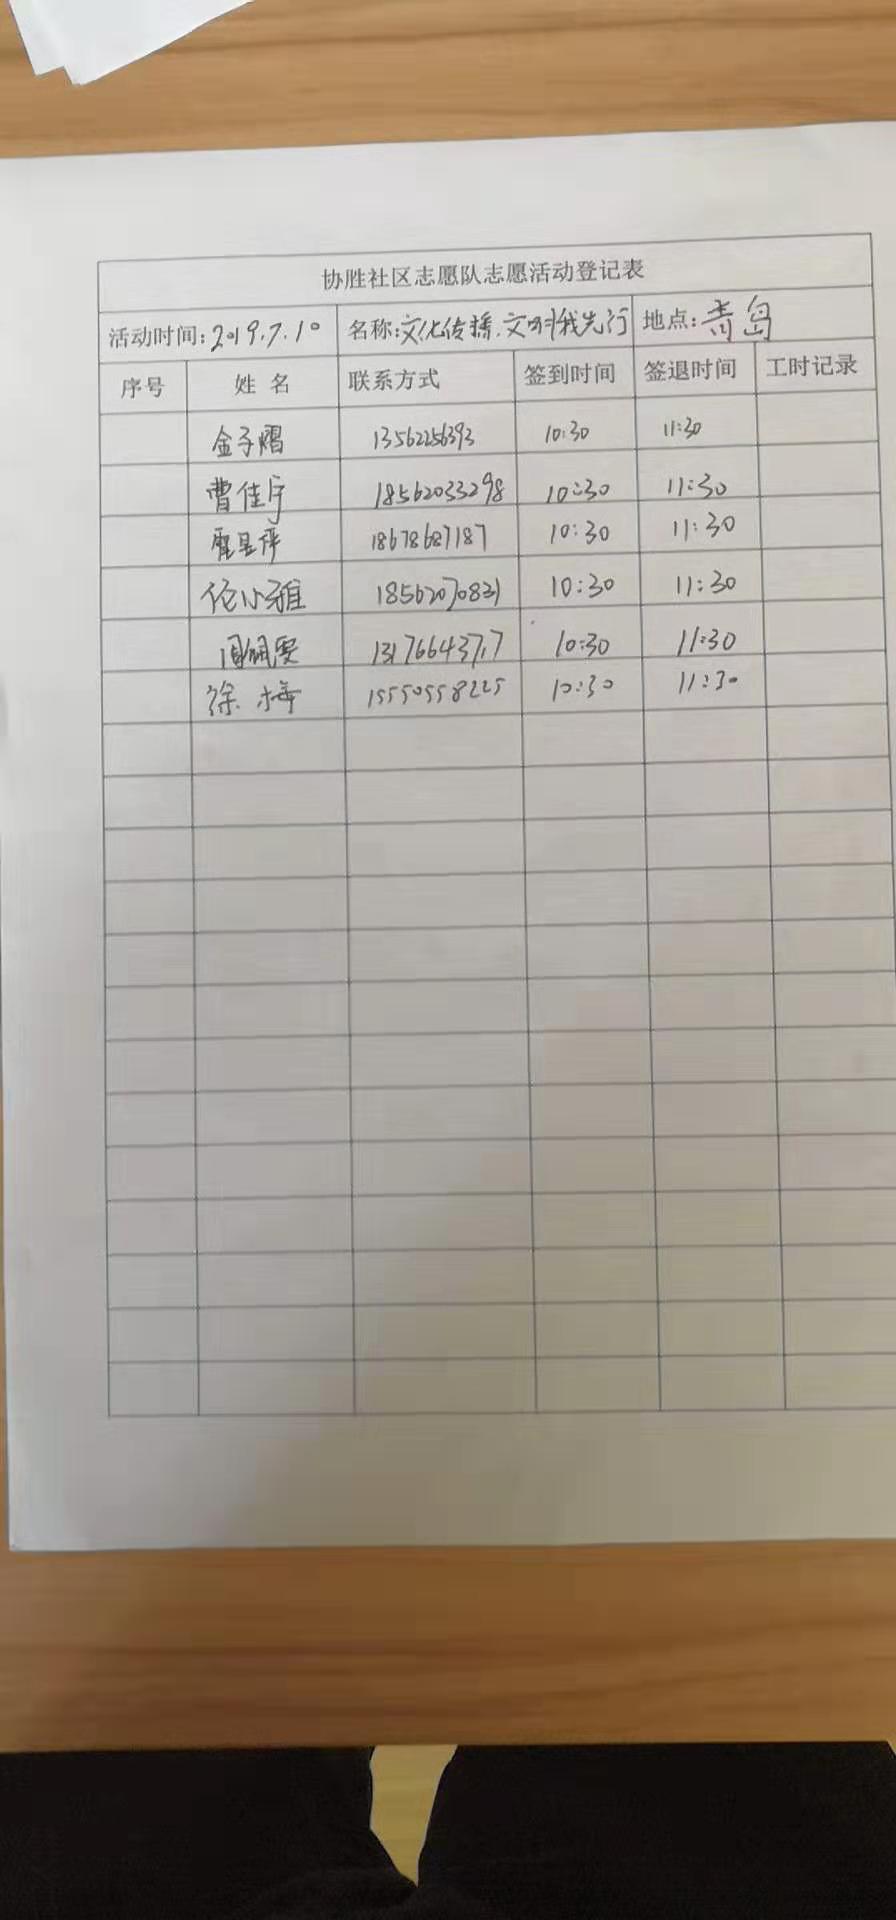 协胜社区志愿队志愿活动登记表
活动时间:2019.7.10 名称:文化传播.文明我先行 地点:青岛
序号 姓名 联系方式 签到时间 签退时间 工时记录
金子熠 13562256393 10:30 11:30
曹佳宇 18562033298 10:30 11:30
18678687187 10:30 11:30
伦小雅 10:30 11:30
10:30 11:30
徐梅 15550558225 10:30 11:30